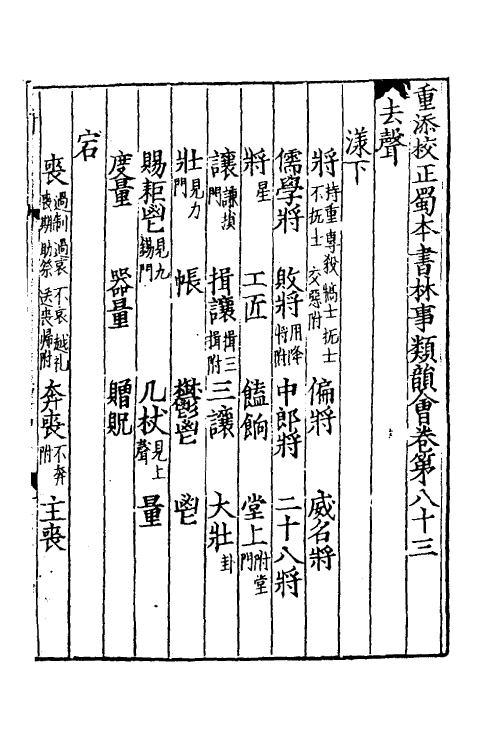 重添校正蜀本書林事類韻會卷第八十三
去聲
漾下
將持重 專殺 犒士 扼士 不扼士 交惡附 偏將 威名將
儒學將 敗將用降將附 中郎將 二十八將
將星 工匠 饁餉 堂上附堂門
讓謙損門 揖讓揖三揖附 三讓 大壯卦
壯見力門 帳 鬱鬯 鬯
賜秬鬯見九錫門 几杖見上聲 量
度量 器量 贈貺
宕
喪過制 過哀 不哀 越礼 喪期 助祭 送喪歸附 奔喪不奔附 主喪